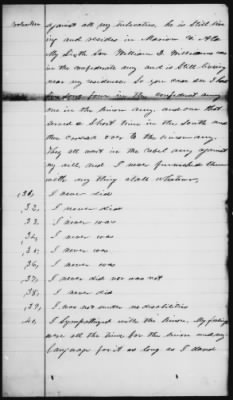 against all my intreaties, he is still liv
ing and resides in Marion Co Ala
My Sixth Son William D. Williams was
in the confederate army and is still living
near my residence. So you see I had
four in the confederate army
one in the Union army and one that
served a short time in the South and
then crossed over to the Union army.
They all went in the rebel army against
my will and I never furnished them
with any thing at all whatever,
,31, I never did
,32, I never did
,33, I never was
,34, I never was
,35, I never was
,36, I never was
,37, I never did nor was not
,38, I never did
,39, I was not under no disabilities
,40, I sympathized with the Union. My feelings
were all the time for the Union and my
language for it as long as I dared